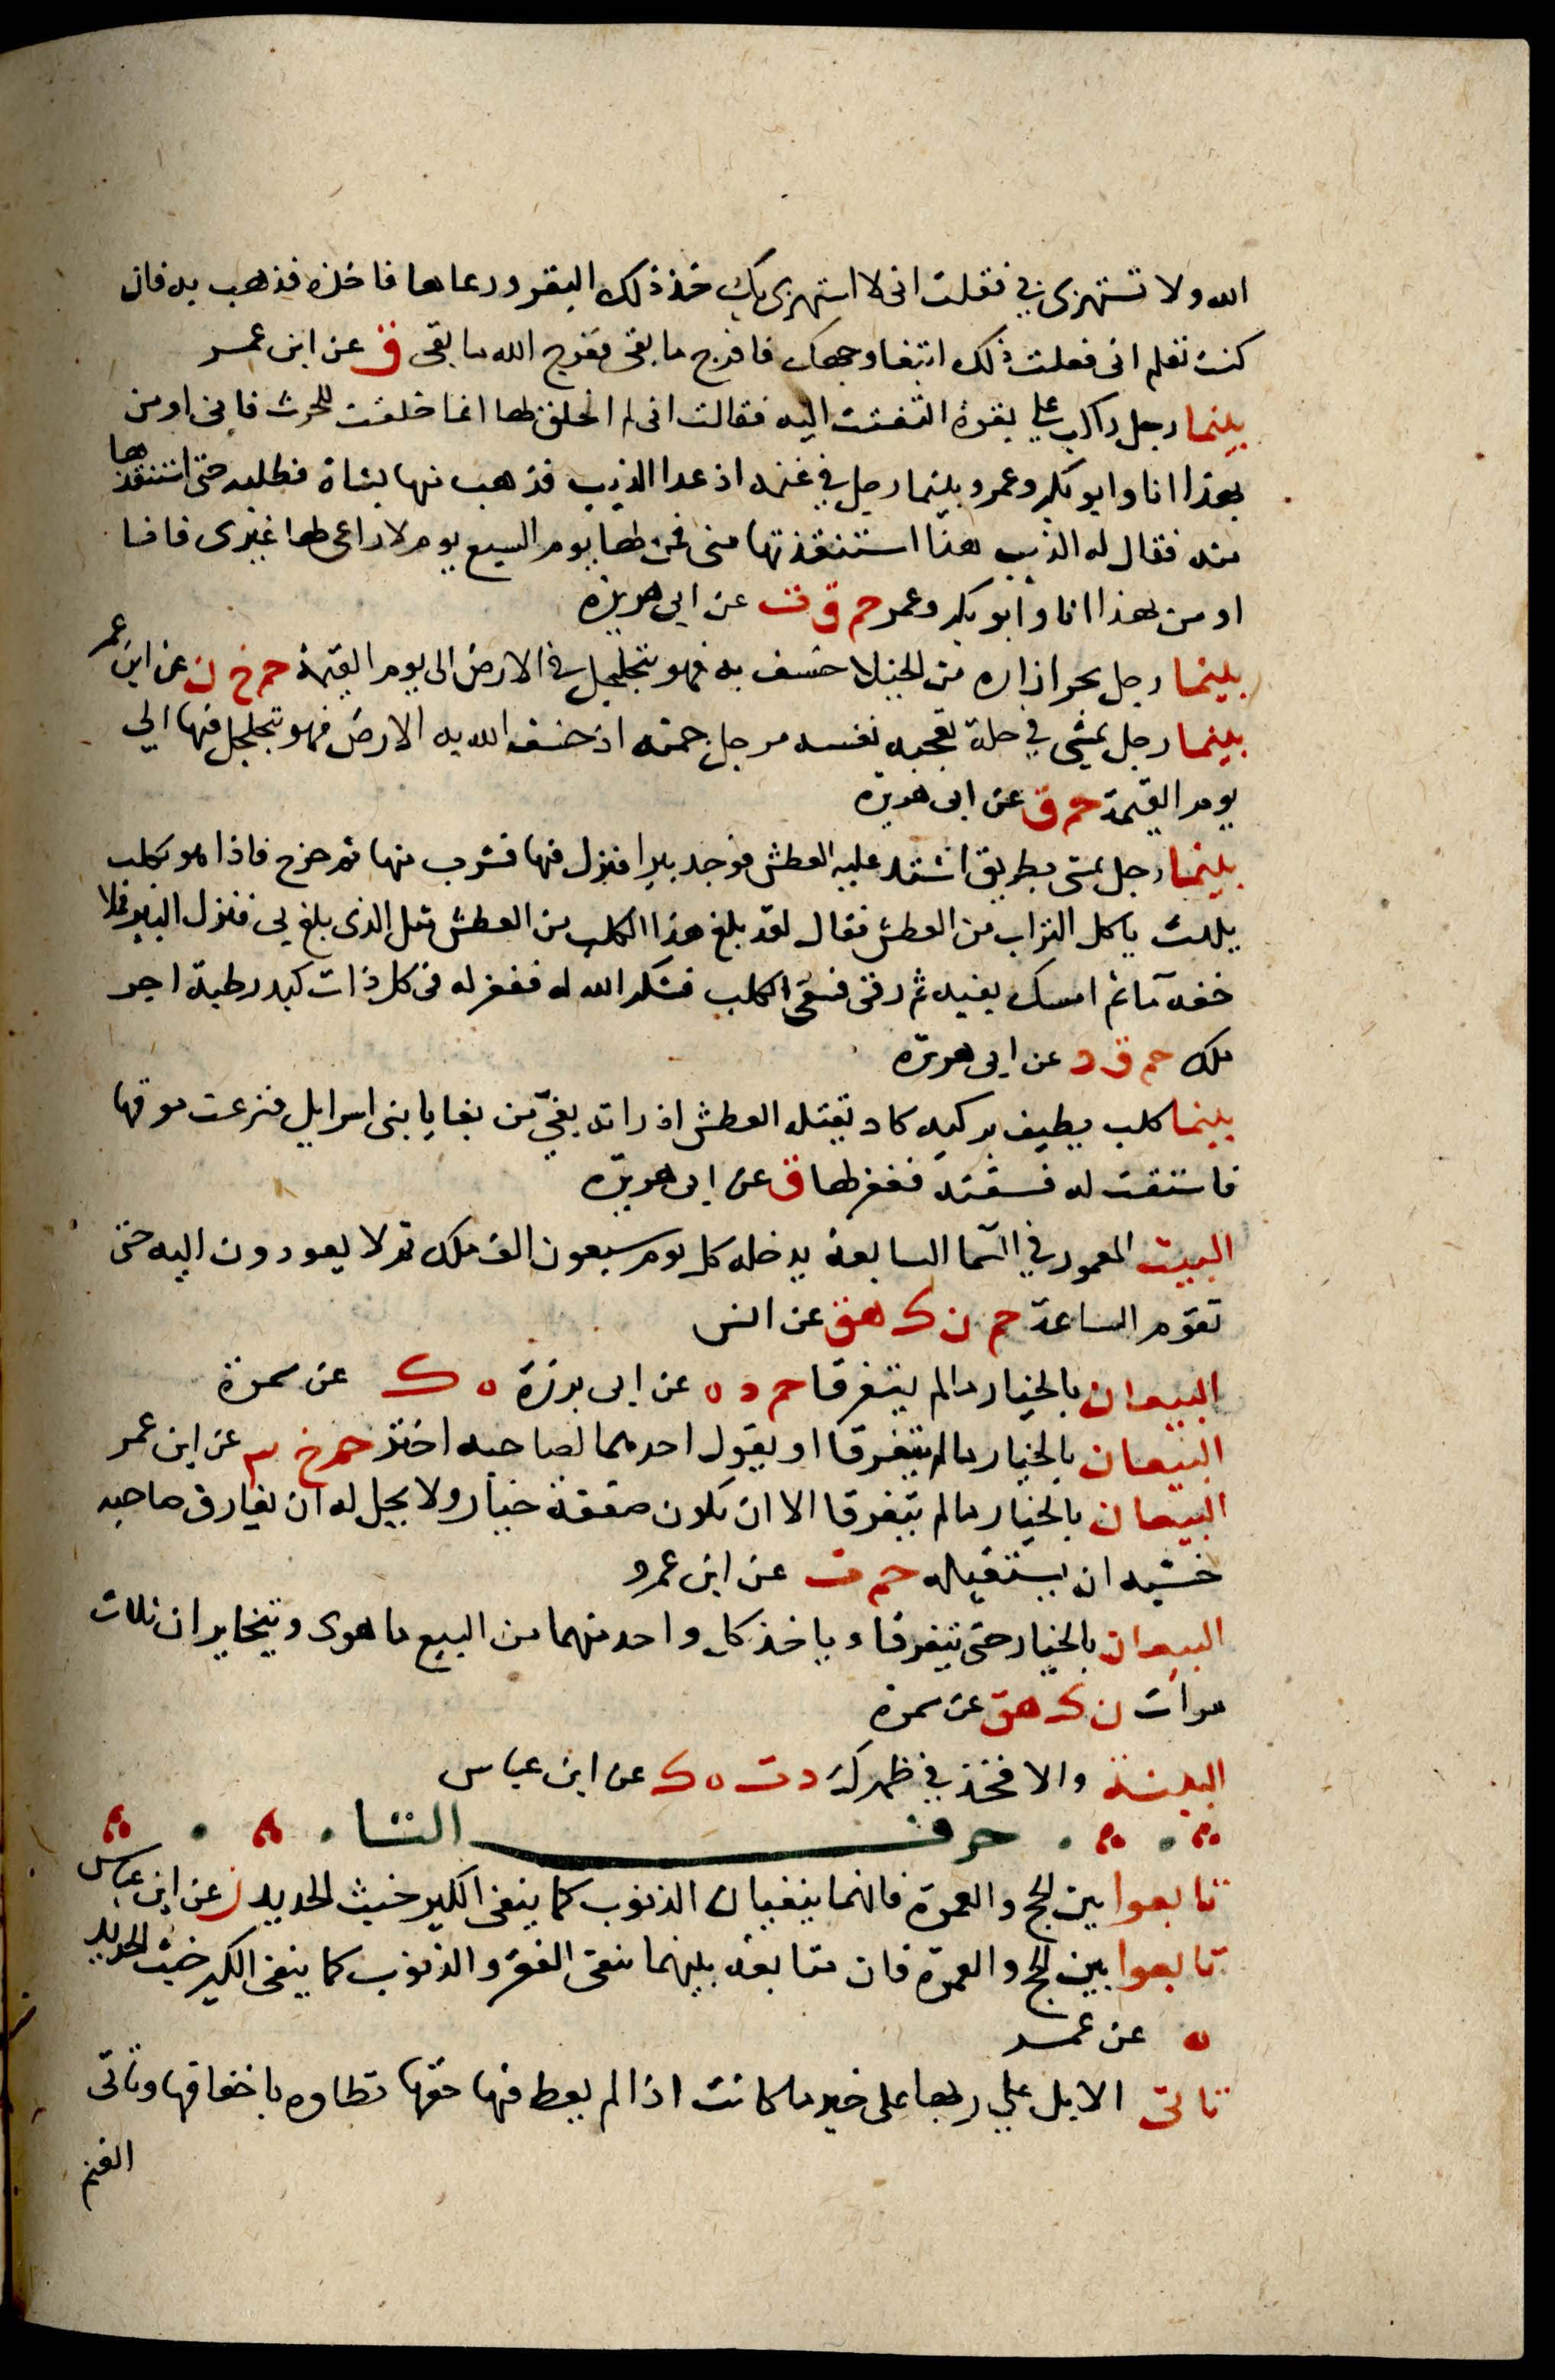 الله ولا تستهزى بي فقلت انى لا استهزى بك خذ ذلك البقر ورعاها فاخذه فذهب به فان
كنت تعلم انى فعلت ذلك ابتغا وجهك فافرج ما بقى ففرج الله ما بقى ق عن ابن عمر
بينما رجل راكب على بقرة التفتت اليه فقالت انى لم اخلق لهذا انما خلقت للحرث فانى اومن
بهذا انا وابو بكر وعمر وبينما رجل في غنمه اذ عدا الذيب فذهب منها بشاة فطلبه حتى استنقذها
منه فقال له الذيب هذا استنقذتها منى فمن لها يوم السبع يوم لا راعى لها غيرى فانا
اومن بهذا انا وابو بكر وعمر حم ق ت عن ابى هريرة
بينما رجل يجر ازاره من الخيلا خسف به فهو يتجلجل في الارض الى يوم القيمة حم خ ن عن ابن عمر
بينما رجل يمشي في حلة تعجبه نفسه مرجل جمته اذ خسف الله به الارض فهو يتجلجل فيها الي
يوم القيمة حم ق عن ابى هريرة
بينما رجل يمشى بطريق اشتد عليه العطش فوجد بيرا فنزل فيها فشرب منها ثم خرج فاذا هو بكلب
يلهث ياكل التراب من العطش فقال لقد بلغ هذا الكلب من العطش مثل الذى بلغ بى فنزل البير فملا
خفه ما ثم امسك بفيه ثم رقى فسقى الكلب فشكر الله له فغفر له فى كل ذات كبد رطبة اجر
ملك حم ق د عن ابى هريرة
بينما كلب يطيف بركيه كاد يقتله العطش اذ راته بغيّ من بغايا بنى اسرايل فنزعت موقها
فاستقت له فسقته فغفر لها ق عن ابى هريرة
البيت المعمور في السما السابعة يدخله كل يوم سبعون الف ملك ثم لا يعودون اليه حتى
تقوم الساعة حم ن ك هق عن انس
البيعان بالخيار مالم يتفرقا حم د ه عن ابى برزة ه ك عن سمرة
البيعان بالخيار مالم يتفرقا او يقول احدهما لصاحبه اختر حم خ م عن ابن عمر
البيعان بالخيار مالم يتفرقا الا ان تكون صفقة خيار ولا يحل له ان يفارق صاحبه
خشية ان يستقيله حم ت عن ابن عمرو
البيعان بالخيار حتى يتفرقا وياخذ كل واحد منهما من البيع ما هوى ويتخايران ثلاث
مرات ن ك هق عن سمرة
البينة والا فحد في ظهرك د ت ه ك عن ابن عباس
حرف التا
تابعوا بين الحج والعمرة فانهما ينفيان الذنوب كما ينفى الكير خبث الحديد ن عن ابن عباس
تابعوا بين الحج والعمرة فان متابعة بينهما تنفى الفقر والذنوب كما ينفى الكير خبث الحديد
ه عن عمر
تاتى الابل علي ربها على خير ما كانت اذا لم يعط فيها حقها تطاوه باخفافها وتاتى
الغنم